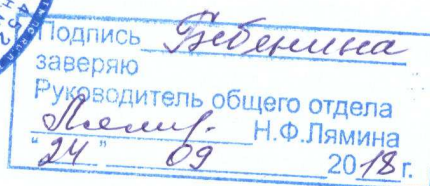 Подпись Бебенина
заверяю
Руководитель общего отдела
Н.Ф.Лямина
"24" 09 2018г.